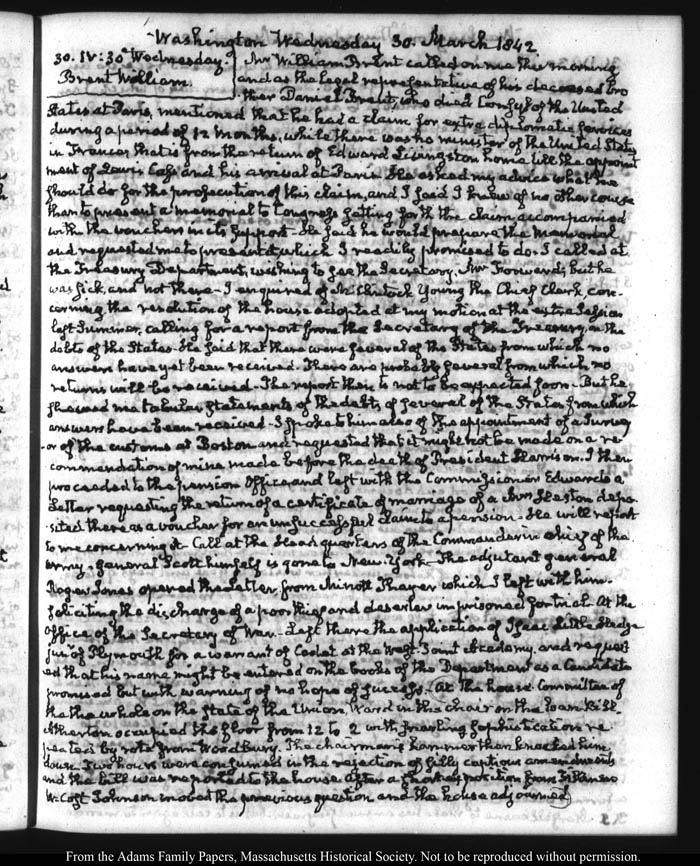 Washington Wednesday 30. March 1842
30. IV:30 Wednesday. Mr William Brent called on me this morning
Brent William. and as the legal representative of his deceased bro
ther Daniel Brent, who died Consul of the United
States at Paris, mentioned that he had a claim for extra diplomatic services
during a period of 12 months, while there was no minister of the United States
in France, that is from the return of Edward Livingston home till the appoint
ment of Lewis Cass and his arrival at Paris. He asked my advice what he
should do for the prosecution of this claim, and I said I knew of no other course
than to present a memorial to Congress setting forth the claim accompanied
with the vouchers in its support. He said he would prepare the Memorial
and requested me to present it, which I readily promised to do. I called at
the Treasury Department, wishing to see the Secretary, Mr Forward; but he
was sick, and not there. I enquired of McClintock Young the Chief Clerk, con-
cerning the resolution of the house adopted at my motion at the extra Session
last Summer, calling for a report from the Secretary of the Treasury, on the
debts of the States. He said that there were several of the States from which no
answers have yet been received. There are probably several from which no
returns will be received. The report then is not to be expected soon. But he
shewed me tabular statements of the debts of several of the States from which
answers have been received. I spoke to him also of the appointment of a Survey
-or of the customs at Boston and requested that it might not be made on a re
commendation of mine made before the death of President Harrison. I then
proceeded to the pension Office and left with the Commissioner Edwards a
Letter requesting the return of a certificate of marriage of a Mrs Heston depo-
sited there as a voucher for an unsuccessful claim to a pension. He will report
to me concerning it. Call at the Head quarters of the Commander in chief of the
army. General Scott himself is gone to New-York. The adjutant general
Roger Jones opened the Letter from Minott Thayer which I left with him.
soliciting the discharge of a poor thief and deserter imprisoned for trial. At the
Office of the Secretary of War. Left there the application of Isaac Little Hedge
junr of Plymouth for a warrant of Cadet at the West-Point Academy, and request
ed that his name might be entered on the books of the Department as a Candidate
promised but with warning of no hope of success. At the house. Committee of
the the whole on the state of the Union, Ward in the chair on the loan bill.
Atherton occupied the floor from 12 to 2 with sophistication re
peated by rote from Woodbury. The chairman's hammer then knocked him
down. Two hours were consumed in the rejection of silly captious amendments
and the bill was reported to the house. After a short exposition from Fillmore
W. Cost Johnson moved the previous question and the house adjourned
From the Adams Family Papers, Massachusetts Historical Society. Not to be reproduced without permission.